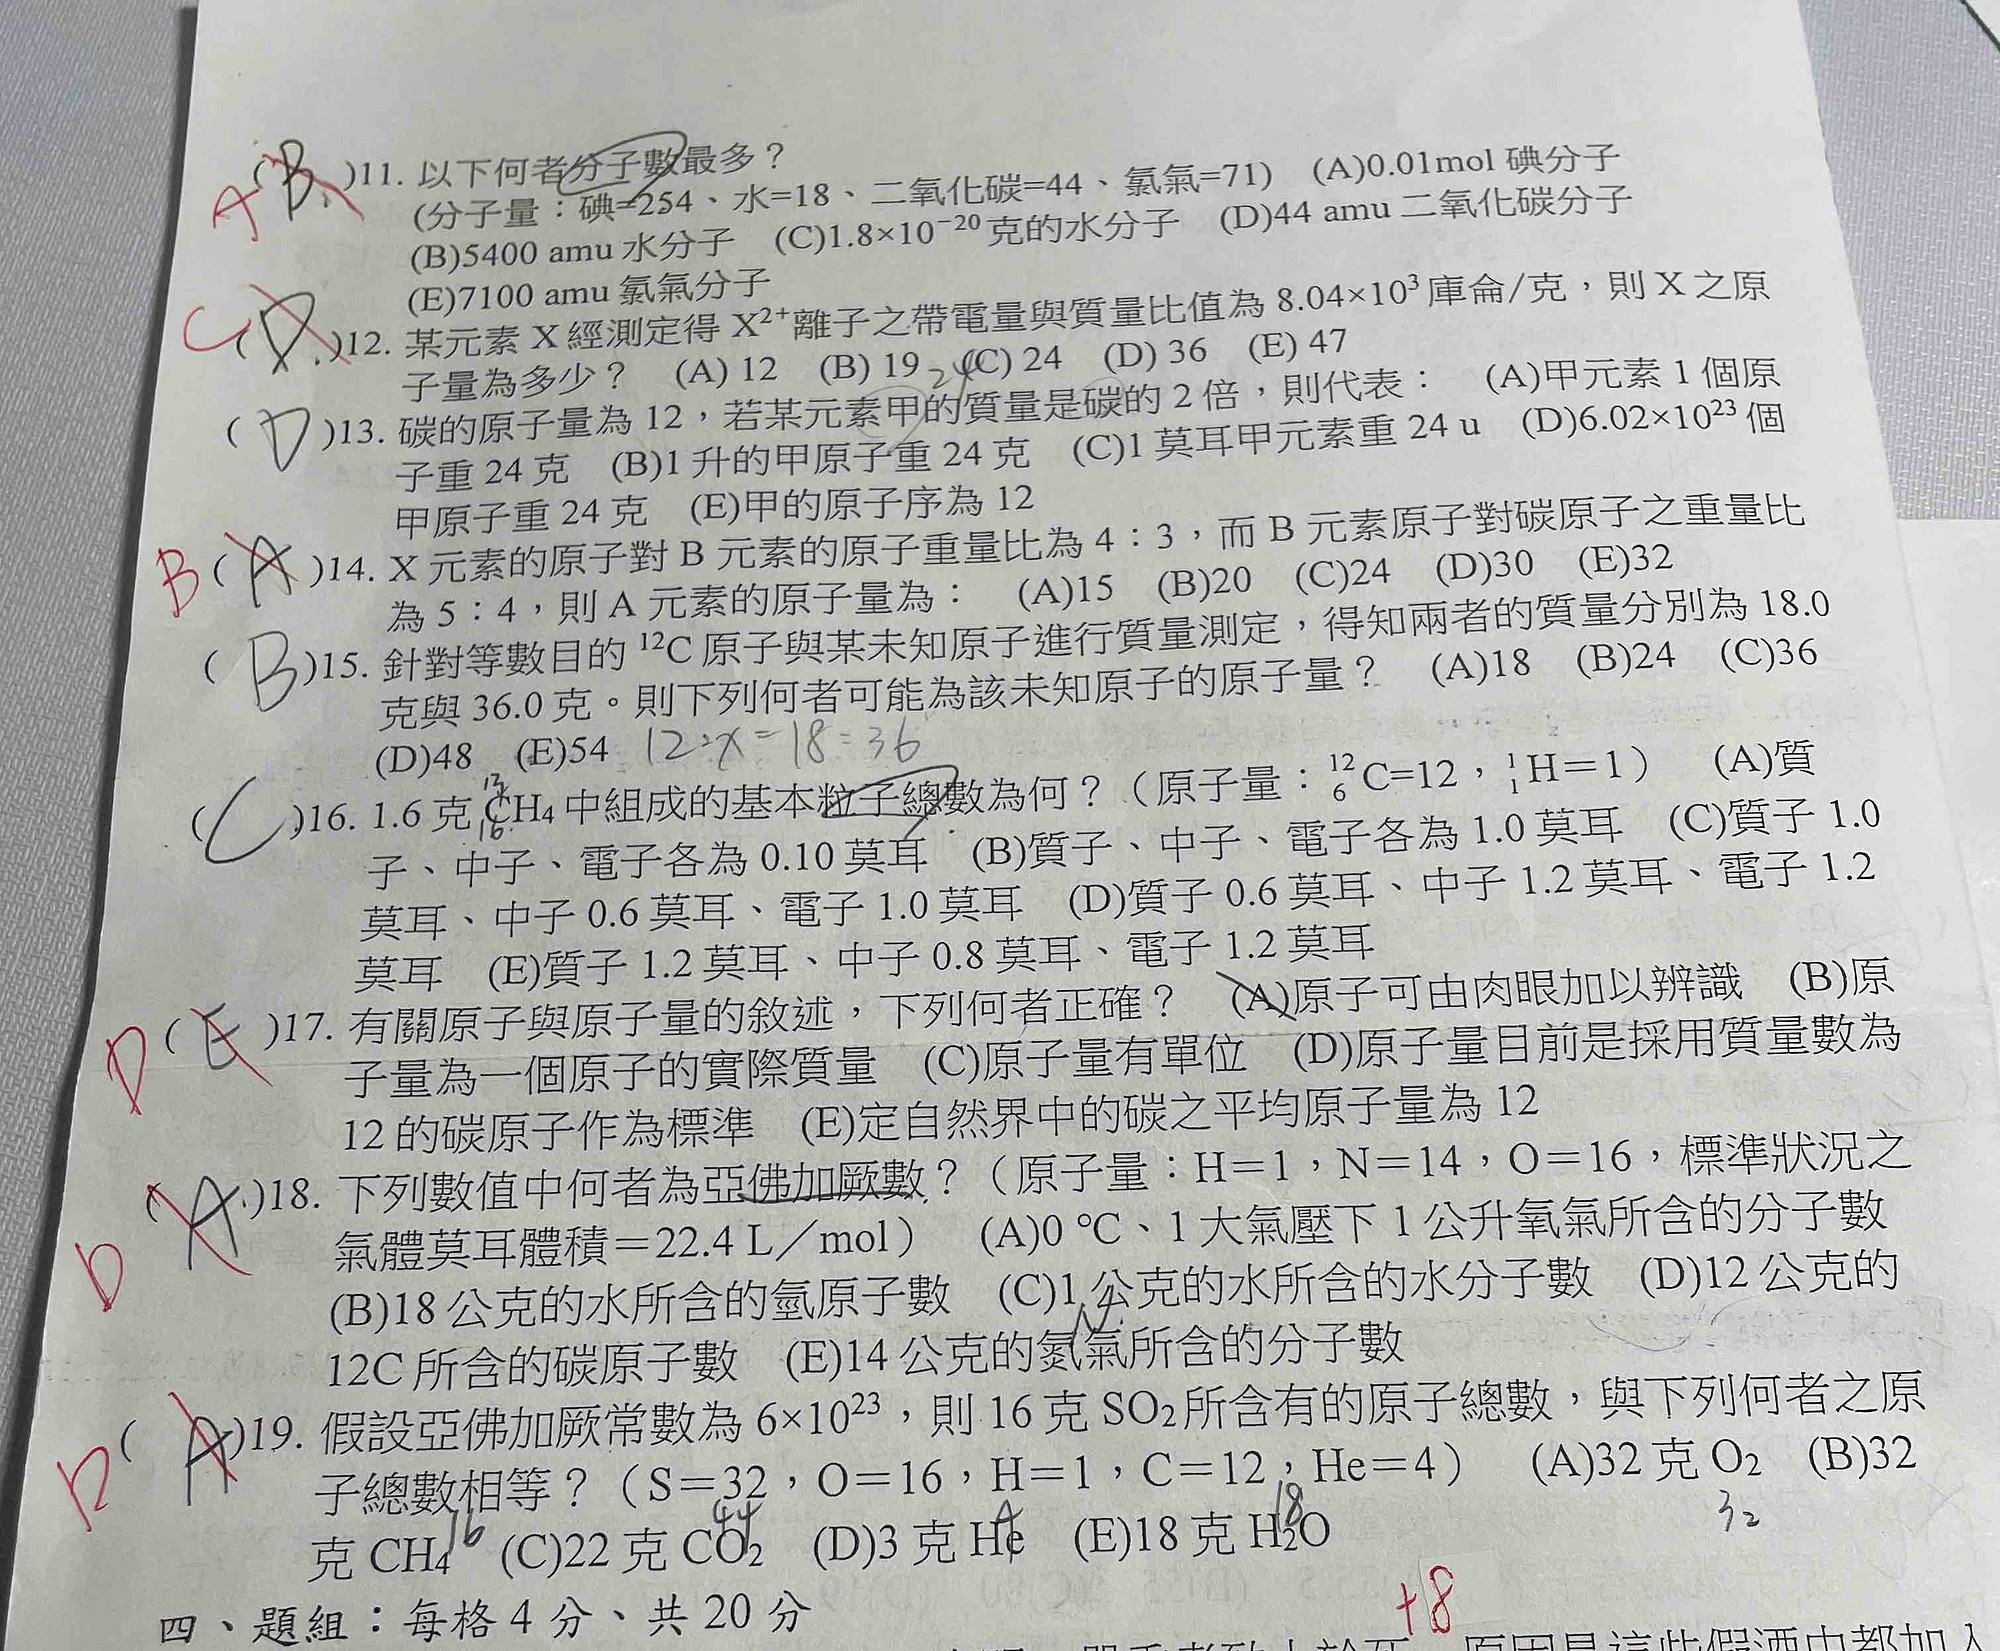 A ( B )11. 以下何者分子數最多？
(分子量：碘=254、水=18、二氧化碳=44、氯氣=71) (A)0.01mol 碘分子
(B)5400 amu 水分子 (C)1.8×10⁻²⁰克的水分子 (D)44 amu 二氧化碳分子
(E)7100 amu 氯氣分子
C ( D )12. 某元素 X 經測定得 X²⁺離子之帶電量與質量比值為 8.04×10³庫侖/克，則 X 之原
子量為多少？ (A) 12 (B) 19 (C) 24 (D) 36 (E) 47
24
( D )13. 碳的原子量為 12，若某元素甲的質量是碳的 2 倍，則代表： (A)甲元素 1 個原
子重 24 克 (B)1 升的甲原子重 24 克 (C)1 莫耳甲元素重 24 u (D)6.02×10²³個
甲原子重 24 克 (E)甲的原子序為 12
B ( A )14. X 元素的原子對 B 元素的原子重量比為 4：3，而 B 元素原子對碳原子之重量比
為 5：4，則 A 元素的原子量為： (A)15 (B)20 (C)24 (D)30 (E)32
( B )15. 針對等數目的 ¹²C 原子與某未知原子進行質量測定，得知兩者的質量分別為 18.0
克與 36.0 克。則下列何者可能為該未知原子的原子量？ (A)18 (B)24 (C)36
(D)48 (E)54 12:x=18:36
12
( C )16. 1.6 克 CH₄ 中組成的基本粒子總數為何？（原子量：¹²₆C=12，¹₁H＝1） (A)質
16
子、中子、電子各為 0.10 莫耳 (B)質子、中子、電子各為 1.0 莫耳 (C)質子 1.0
莫耳、中子 0.6 莫耳、電子 1.0 莫耳 (D)質子 0.6 莫耳、中子 1.2 莫耳、電子 1.2
莫耳 (E)質子 1.2 莫耳、中子 0.8 莫耳、電子 1.2 莫耳
D ( E )17. 有關原子與原子量的敘述，下列何者正確？ (A)原子可由肉眼加以辨識 (B)原
子量為一個原子的實際質量 (C)原子量有單位 (D)原子量目前是採用質量數為
12 的碳原子作為標準 (E)定自然界中的碳之平均原子量為 12
D ( A )18. 下列數值中何者為亞佛加厥數？（原子量：H＝1，N＝14，O＝16，標準狀況之
氣體莫耳體積＝22.4 L／mol） (A)0 ℃、1 大氣壓下 1 公升氧氣所含的分子數
(B)18 公克的水所含的氫原子數 (C)1 公克的水所含的水分子數 (D)12 公克的
12C 所含的碳原子數 (E)14 公克的氮氣所含的分子數
D ( A )19. 假設亞佛加厥常數為 6×10²³，則 16 克 SO₂所含有的原子總數，與下列何者之原
子總數相等？（S＝32，O＝16，H＝1，C＝12，He＝4） (A)32 克 O₂ (B)32
16 44 4 18 32
克 CH₄ (C)22 克 CO₂ (D)3 克 He (E)18 克 H₂O
四、題組：每格 4 分、共 20 分
+8